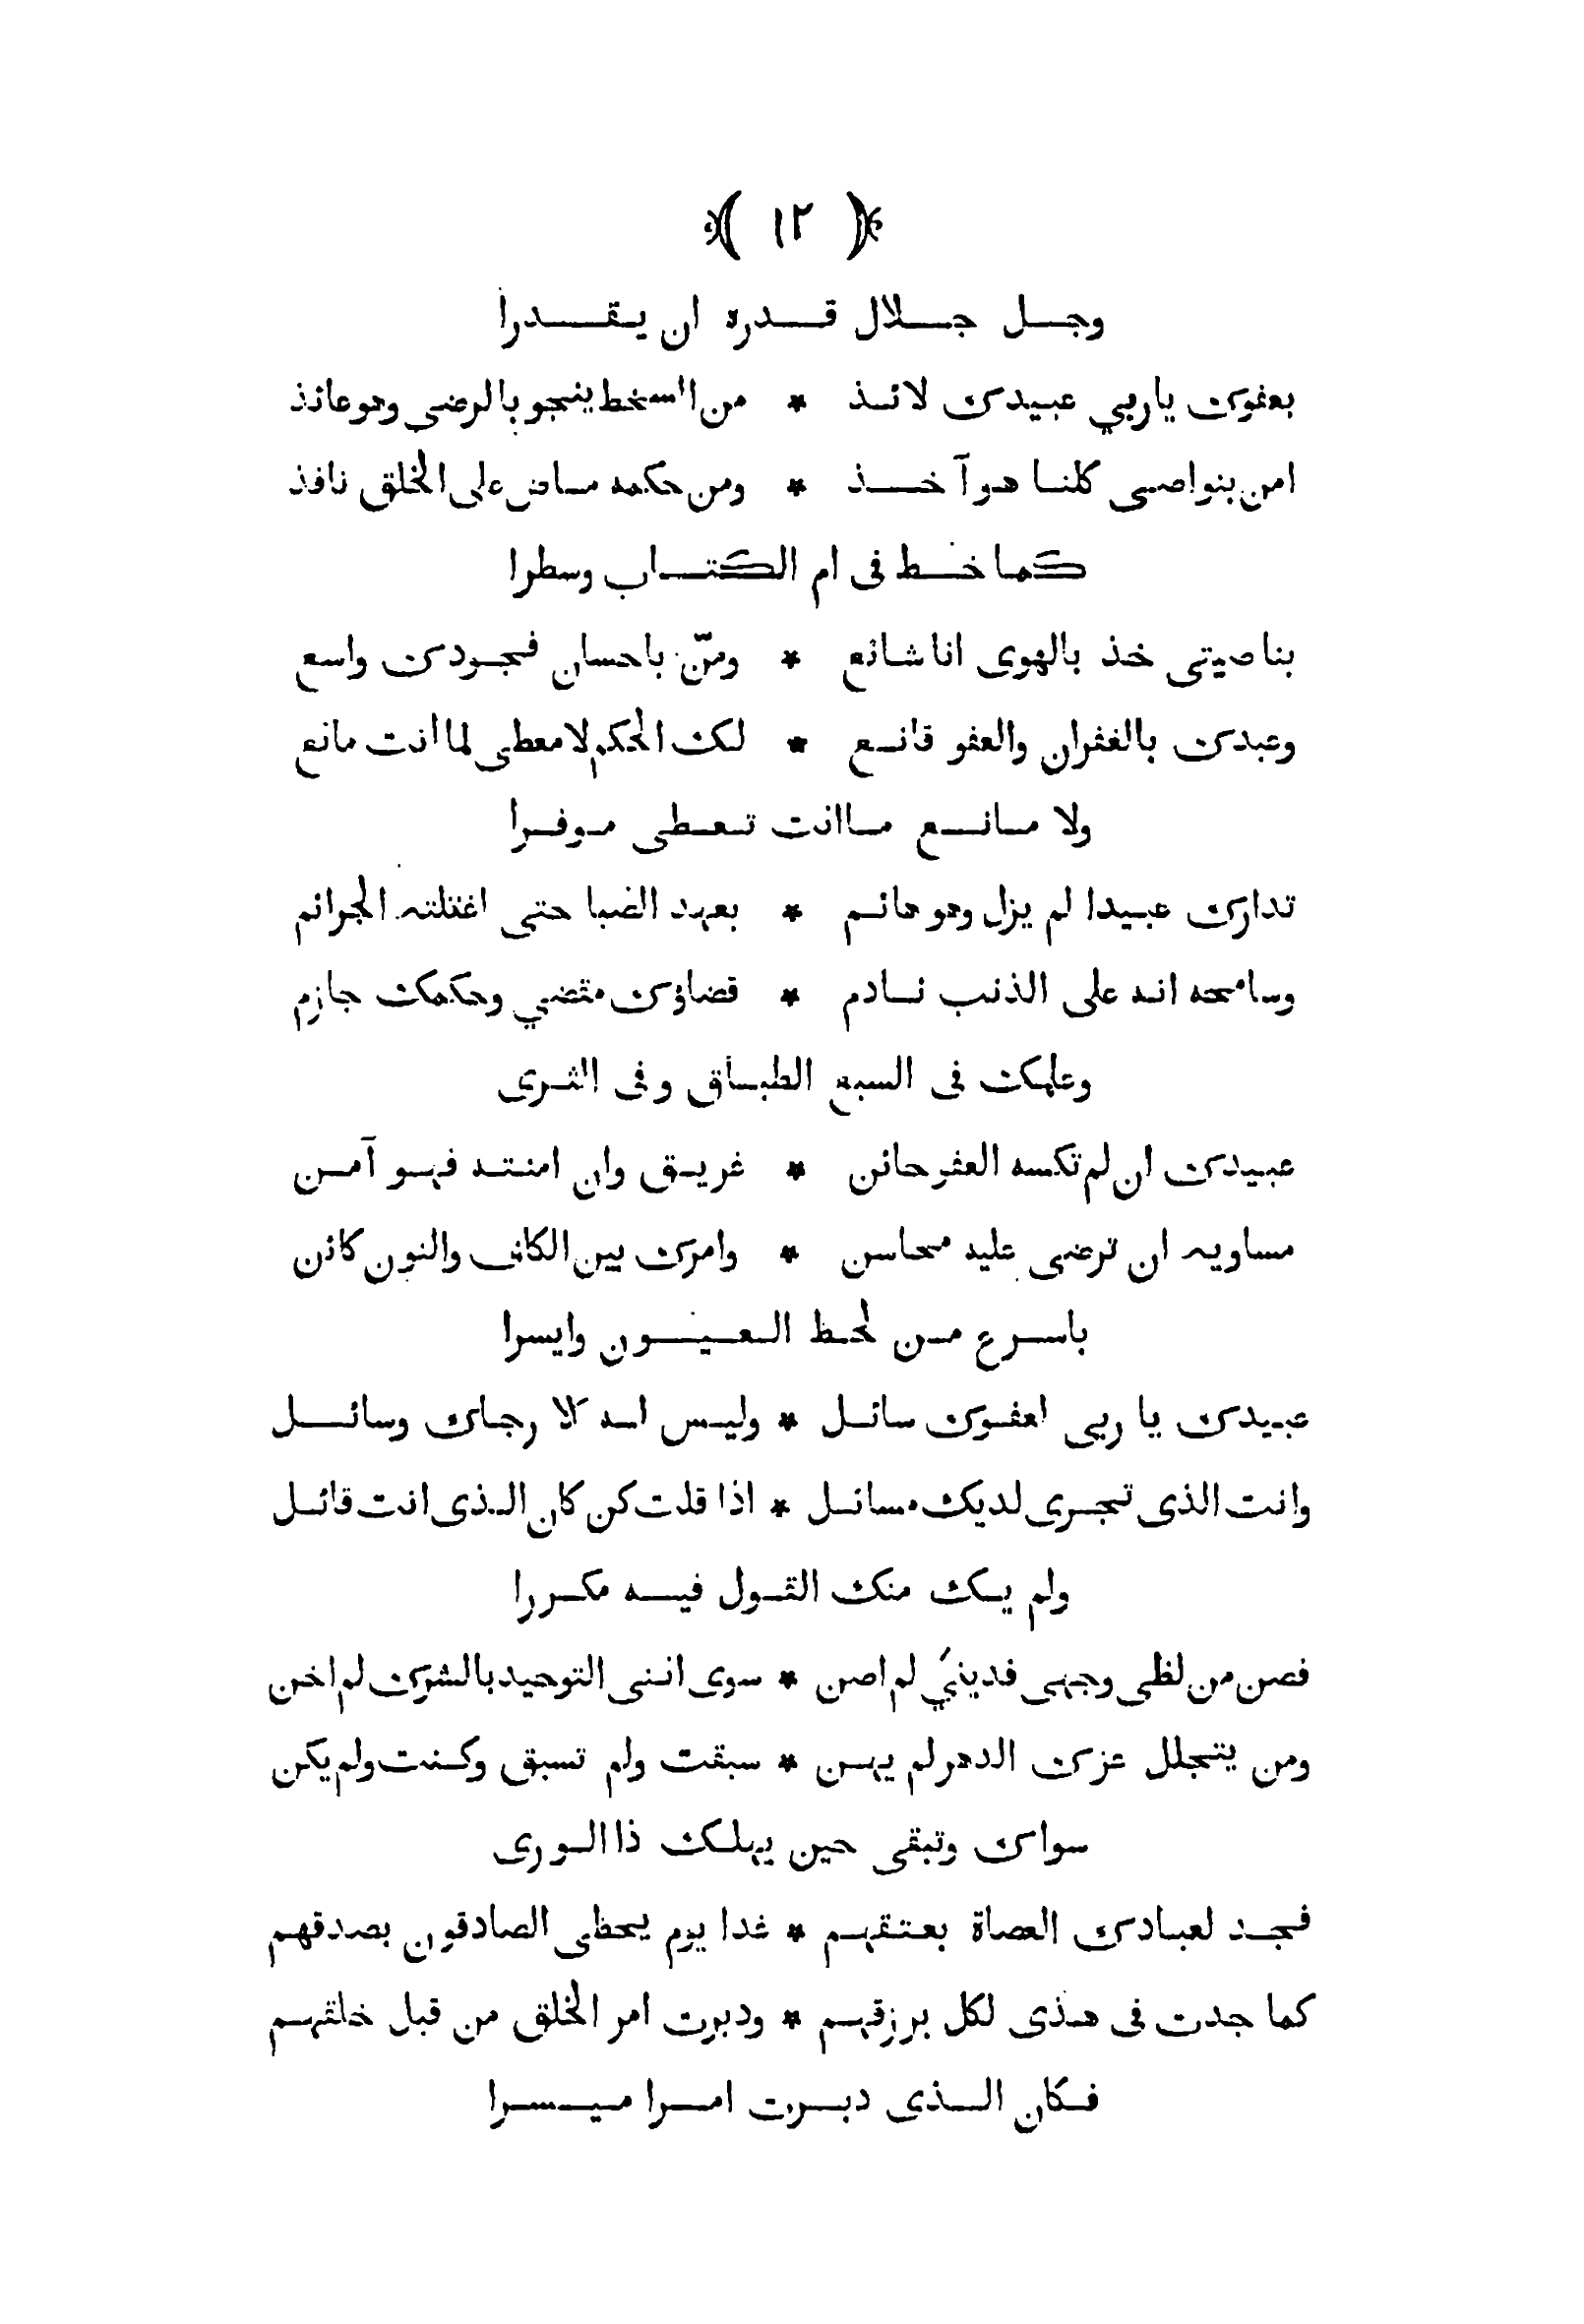 ﴿ ١٢ ﴾
وجل جلال قدره ان يقدرا
بعفوك ياربي عبيدك لائذ * من السخط ينجو بالرضى وهو عائذ
امن بنواصى كلنا هو آخذ * ومن حكمه ماض على الخلق نافذ
كما خط فى ام الكتاب وسطرا
بناصيتى خذ بالهوى انا شائع * ومنّ باحسان فجودك واسع
وعبدك بالغفران والعفو قانع * لك الحكم لا معطى لما انت مانع
ولا مانع ما انت تعطى موفرا
تدارك عبيدا لم يزل وهو هائم * بعهد الضبا حتى اغتلته الجرائم
وسامحه انه على الذنب نادم * قضاؤك مقضي وحكمك جازم
وعلمك فى السبع الطباق وفى الثرى
عبيدك ان لم تكسه العفو حائن * غريق وان امنته فهو آمن
مساويه ان ترضى عليه محاسن * وامرك بين الكاف والنون كائن
باسرع من لحظ العيون وايسرا
عبيدك يا ربى لعفوك سائل * وليس له كلا رجاك وسائل
وانت الذى تجرى لديك مسائل * اذا قلت كن كان الذى انت قائل
ولم يك منك القول فيه مكررا
فصن من لظى وجهى فدينيَ لم اصن * سوى اننى التوحيد بالشرك لم اخن
ومن يتجلل عزك الدهر لم يهن * سبقت ولم تسبق وكنت ولم يكن
سواك وتبقى حين يهلك ذا الورى
فجد لعبادك العصاة بعتقهم * غدا يوم يحظى الصادقون بصدقهم
كما جدت فى هذى لكل برزقهم * ودبرت امر الخلق من قبل خلقهم
فكان الذى دبرت امرا ميسرا